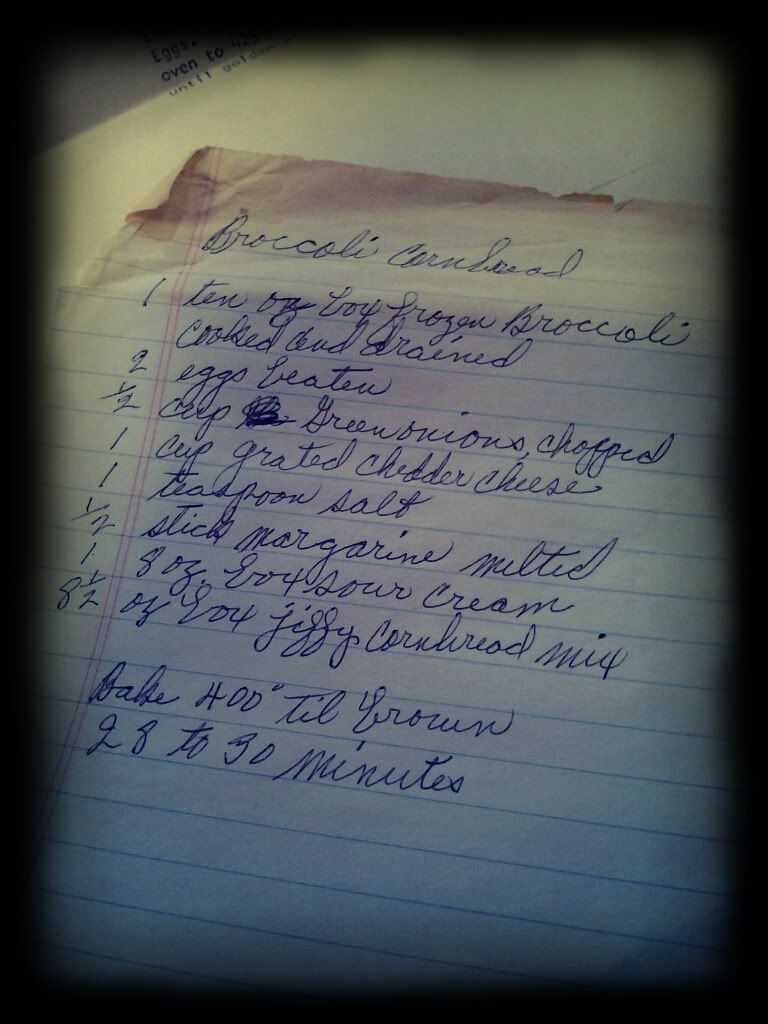 Eggs.
oven to 425
until golden
Broccoli Cornbread
1 ten oz box frozen Broccoli
cooked and drained
2 eggs beaten
1/2 cup Green onions, chopped
1 cup grated chedder cheese
1 teaspoon salt
1/2 stick margarine melted
1 8 oz. box sour cream
8 1/2 oz box jiffy cornbread mix
Bake 400° til brown
28 to 30 minutes